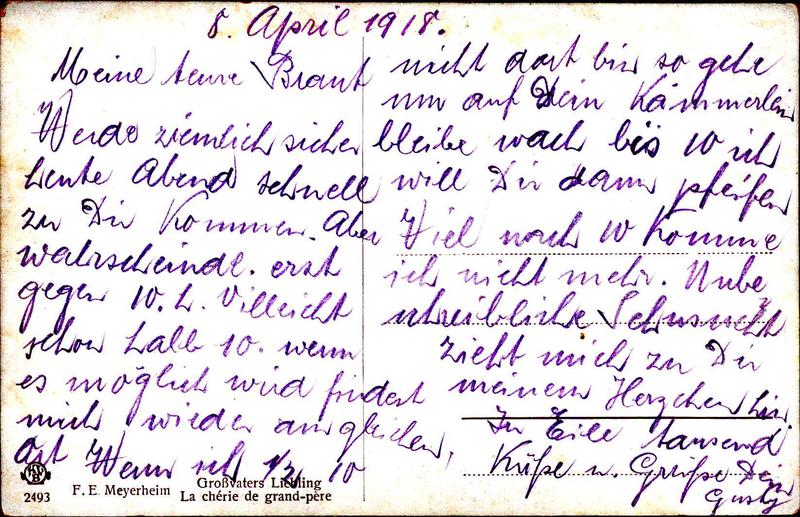 8. April 1918.
Meine teure Braut
Werde ziemlich sicher
heute Abend schnell
zu Dir kommen. Aber
wahrscheinl. erst
gegen 10. h. Villeicht
schon halb 10. wenn
es möglich wird findest
mich wieder am gleichen
Ort Wenn ich 1/2 10
nicht dort bin so gehe
nur auf Dein Kämmerlein
bleibe wach bis 10 ich
will Dir dann pfeifen
Viel nach 10 komme
ich nicht mehr. Unbe
schreibliche Sehnsucht
zieht mich zu Dir
meinem Herzchen hin
In Eile tausend
Küße u. Grüße Dein
Gusty
2493
F. E. Meyerheim
Großvaters Liebling
La chérie de grand-père